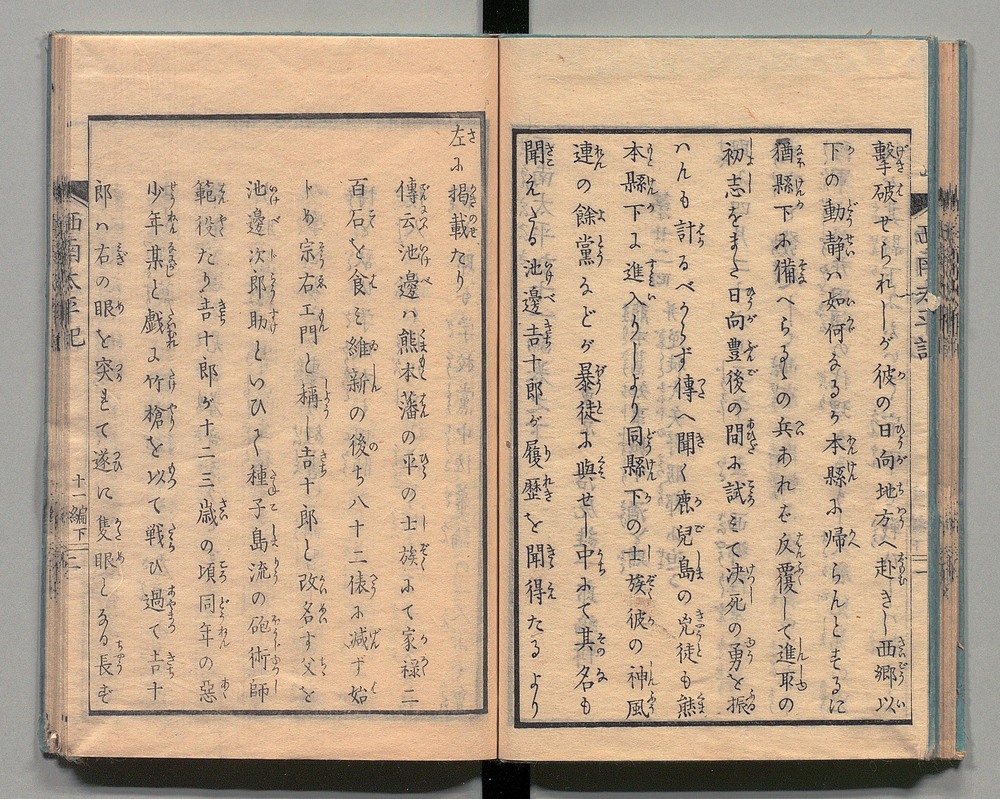 撃破せられしが彼の日向地方へ赴きし西郷以
下の動静ハ如何なるか本縣に帰らんとするに
猶縣下に備へらるの兵あれバ反覆して進取の
初志をまた日向豊後の間に試ミて决死の勇を振
ハんも計るべからず傳へ聞く鹿兒島の兇徒も熊
本縣下に進入りしより同縣下の士族彼の神風
連の餘黨などが暴徒に與せし中にて其名も
聞えたる池邊吉十郎が履歴を聞得たるより
左に掲載たり
傳云池邊ハ熊本藩の平の士族にて家禄二
百石を食ミ維新の後ち八十二俵に减ず始
卜め宗右エ門と稱し吉十郎と改名す父を
池邊次郎助といひて種子島流の砲術師
範役たり吉十郎が十二三歳の頃同年の惡
少年某と戯に竹槍を以て戦ひ過て吉十
郎ハ右の眼を突れて遂に隻眼となる長ず
西南太平記
十一編下
二